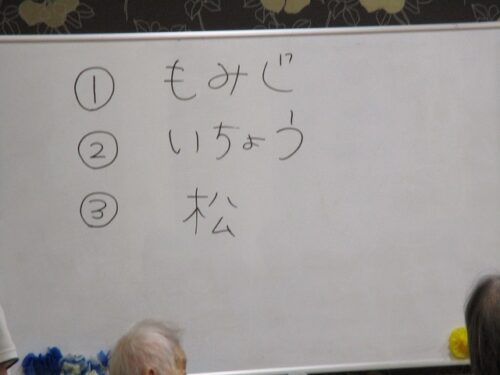 ① もみじ
② いちょう
③ 松